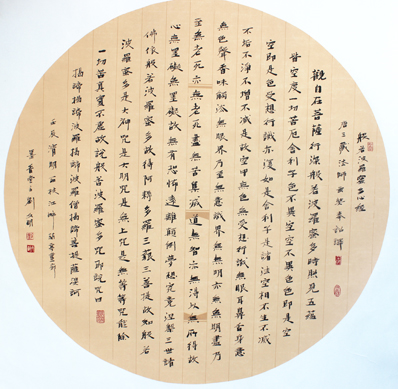 般若波羅蜜多心經
唐三藏法師玄奘奉詔譯
觀自在菩薩行深般若波羅蜜多時照見五蘊
皆空度一切苦厄舍利子色不異空空不異色色即是空
空即是色受想行識亦復如是舍利子是諸法空相不生不滅
不垢不淨不增不減是故空中無色無受想行識無眼耳鼻舌身意
無色聲香味觸法無眼界乃至無意識界無無明亦無無明盡乃
至無老死亦無老死盡無苦集滅道無智亦無得以無所得故
心無罣礙無罣礙故無有恐怖遠離顛倒夢想究竟涅槃三世諸
佛依般若波羅蜜多故得阿耨多羅三藐三菩提故知般若
波羅蜜多是大神咒是大明咒是無上咒是無等等咒能除
一切苦真實不虛故說般若波羅蜜多咒即說咒曰
揭諦揭諦波羅揭諦波羅僧揭諦菩提薩婆訶
壬辰